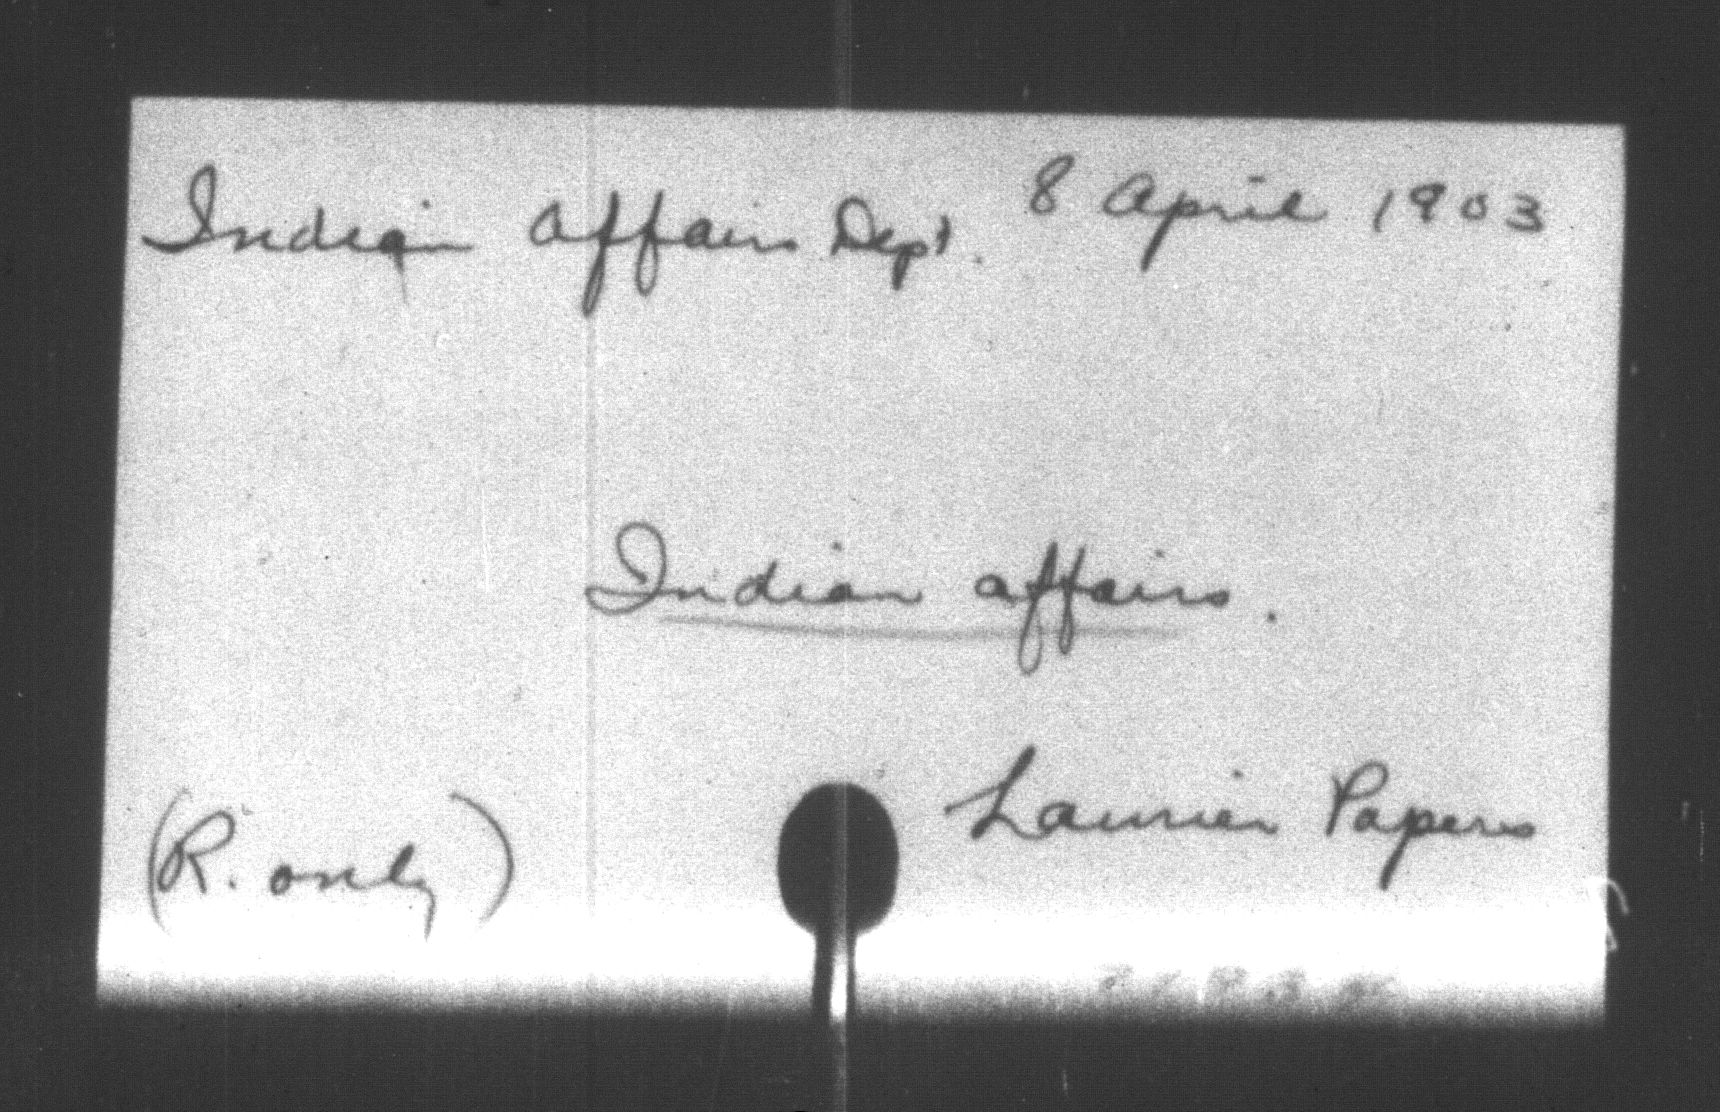 Indian Affairs Dept. 8 April 1903
Indian affairs.
Laurier Papers
(R. only)